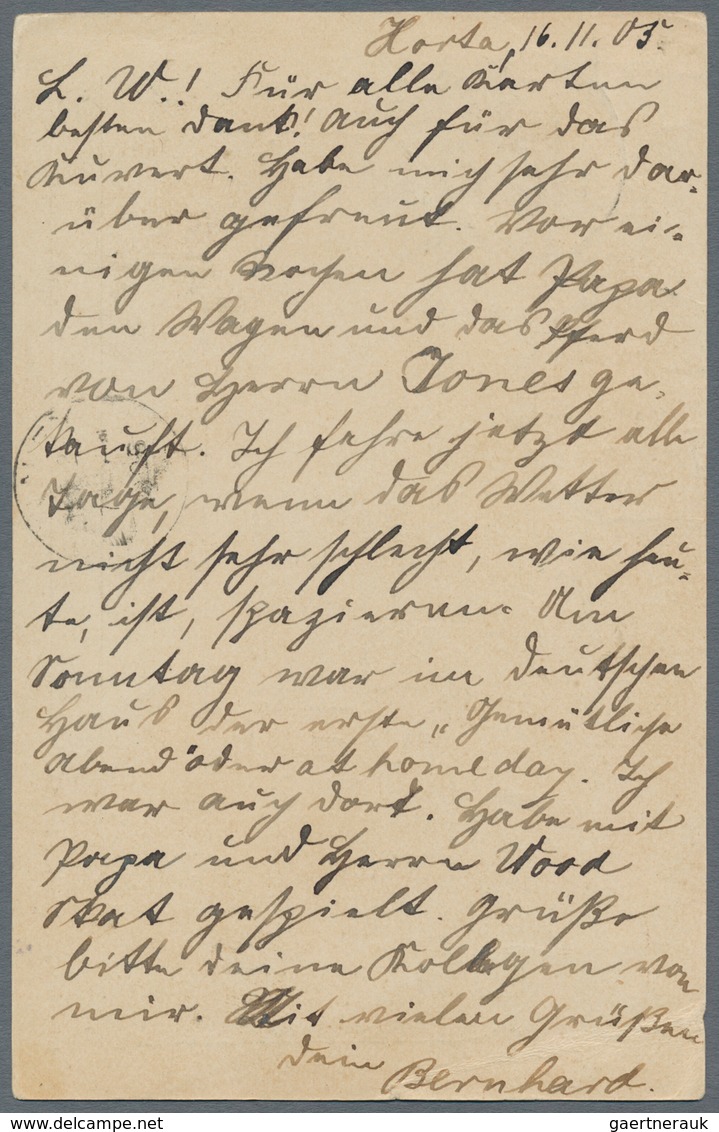 Horta, 16.11.05.
L. W.! Für alle Karten
besten Dank! Auch für das
Kuvert. Habe mich sehr dar-
über gefreut. Vor ei-
nigen Wochen hat Papa
den Wagen und das Pferd
von Herrn Jones ge-
kauft. Ich fahre jetzt alle
Tage, wenn das Wetter
nicht sehr schlecht, wie heu-
te, ist, spazieren. Am
Sonntag war im deutschen
Haus der erste „Gemütliche
Abend" oder at home day. Ich
war auch dort. Habe mit
Papa und Herrn Wood
Skat gespielt. Grüße
bitte deine Kollegen von
mir. Mit vielen Grüßen
dein
Bernhard.
gaertnerauk